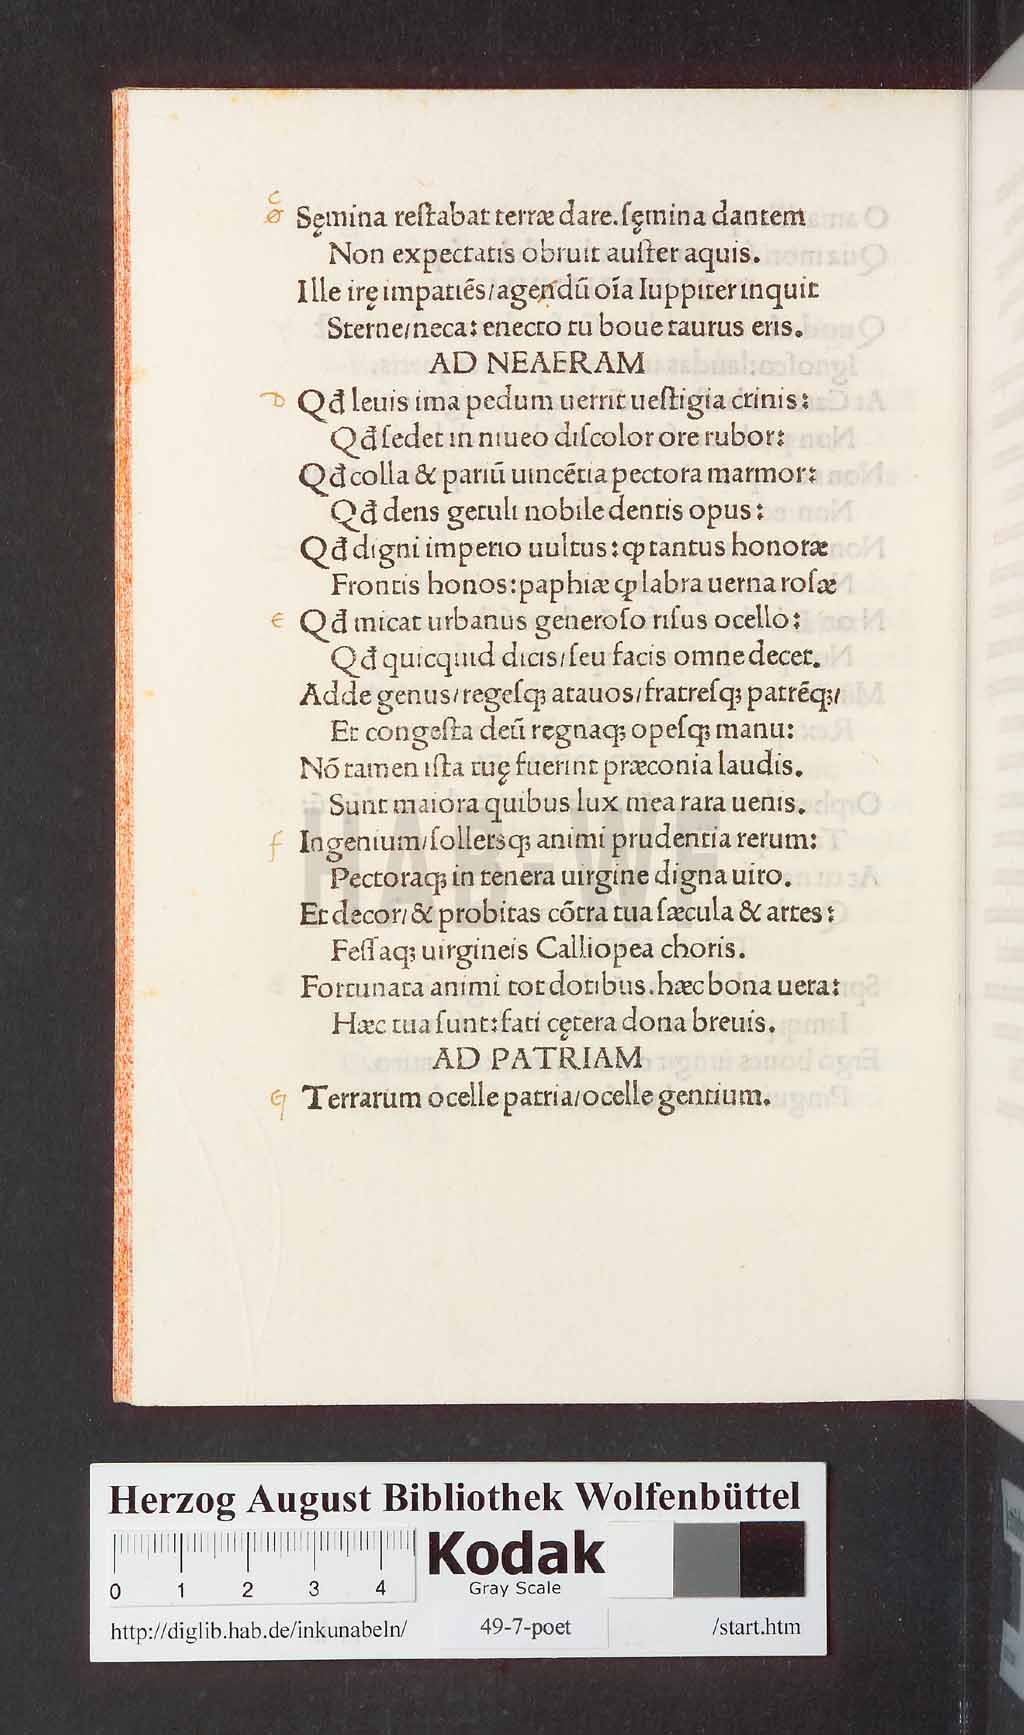 c
ø Sęmina reſtabat terræ dare. ſęmina dantem
Non expectatis obruit auſter aquis.
Ille irę impatiẽs/agendũ oĩa Iuppiter inquit
Sterne/neca: enecto tu boue taurus eris.
AD NEAERAM
D Qđ leuis ima pedum uerrit ueſtigia crinis:
Qđ ſedet in niueo diſcolor ore rubor:
Qđ colla & pariũ uincẽtia pectora marmor:
Qđ dens getuli nobile dentis opus:
Qđ digni imperio uultus: ꝙ tantus honoræ
Frontis honos: paphiæ ꝙ labra uerna roſæ
e Qđ micat urbanus generoſo riſus ocello:
Qđ quicquid dicis/ſeu facis omne decet.
Adde genus/regeſq; atauos/fratreſq; patrẽq;/
Et congeſta deũ regnaq; opeſq; manu:
Nõ tamen iſta tuę fuerint præconia laudis.
Sunt maiora quibus lux mea rara uenis.
f Ingenium/ſollersq; animi prudentia rerum:
Pectoraq; in tenera uirgine digna uiro.
Et decor/& probitas cõtra tua ſæcula & artes:
Feſſaq; uirgineis Calliopea choris.
Fortunata animi tot dotibus. hæc bona uera:
Hæc tua ſunt: fati cętera dona breuis.
AD PATRIAM
G Terrarum ocelle patria/ocelle gentium.
HAB-WF
Herzog August Bibliothek Wolfenbüttel
0 1 2 3 4
Kodak
Gray Scale
http://diglib.hab.de/inkunabeln/ 49-7-poet /start.htm